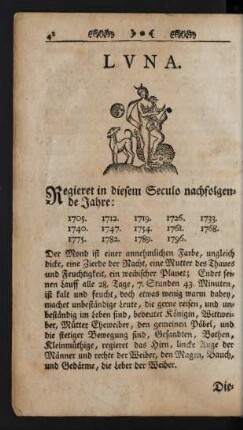 42
LVNA.
Regieret in diesem Seculo nachfolgen-
de Jahre:
1705. 1712. 1719. 1726. 1733.
1740. 1747. 1754. 1761. 1768.
1775. 1782. 1789. 1796.
Der Mond ist einer annehmlichen Farbe, ungleich
dicke, eine Zierde der Nacht, eine Mutter des Thaues
und Feuchtigkeit, ein weibischer Planet; Endet sei-
nen Lauff alle 28. Tage, 7. Stunden 43. Minuten,
ist kalt und feucht, doch etwas wenig warm dabey,
machet unbeständige Leute, die gerne reisen, und un-
beständig im Leben sind, bedeutet Königin, Wittwei-
ber, Mütter Eheweiber, den gemeinen Pöbel, und
die stetiger Bewegung sind, Gesandten, Bothen,
Kleinmüthige, regieret das Hirn, lincke Auge der
Männer und rechte der Weiber, den Magen, Bauch,
und Gedärme, die Leber der Weiber.
Die-